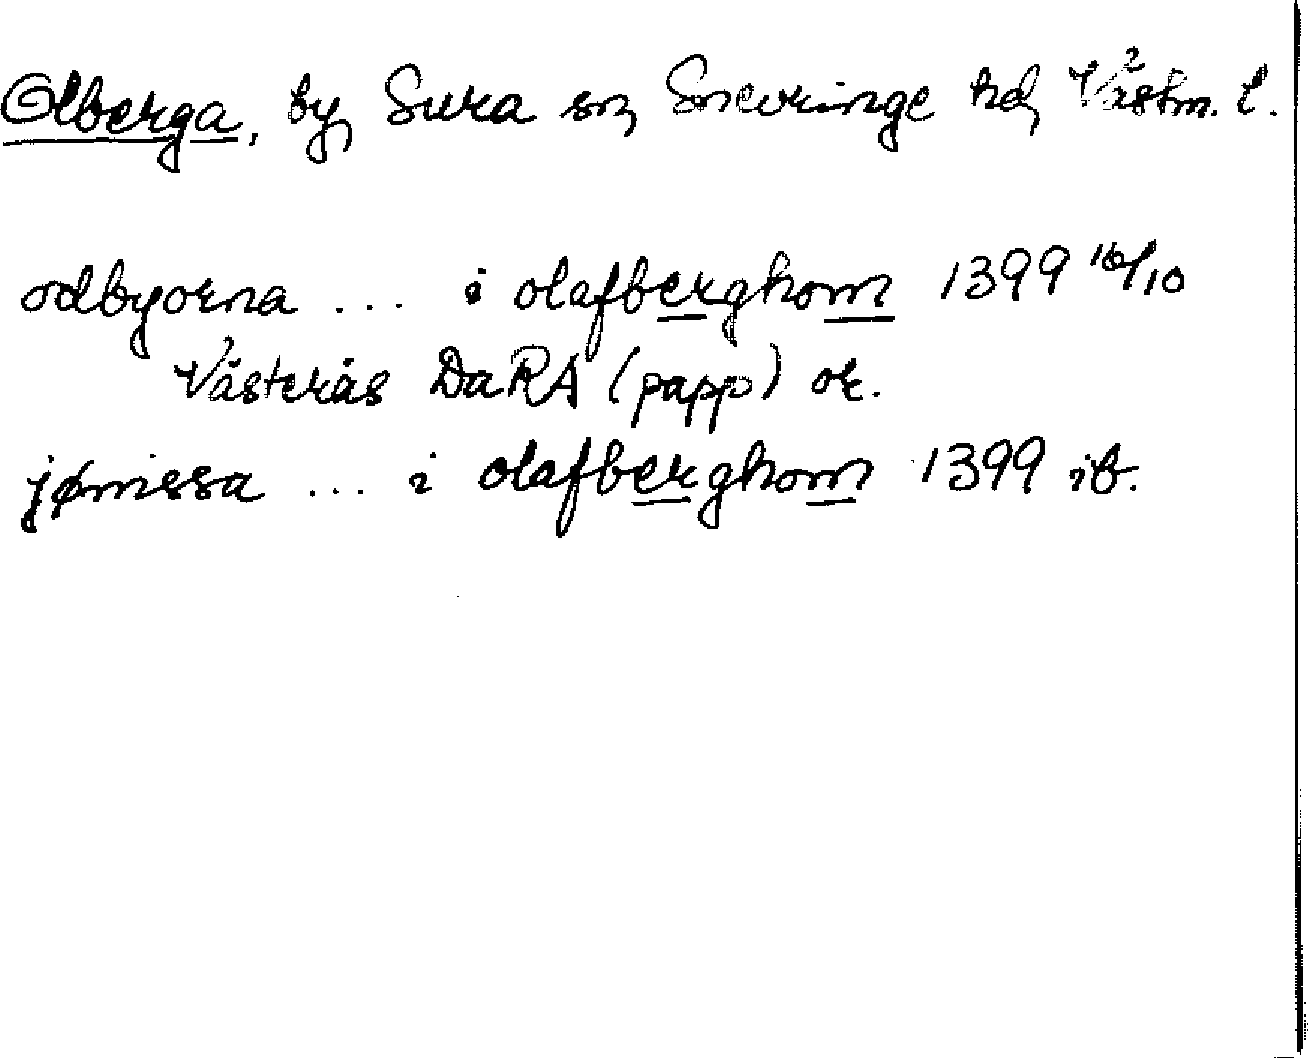 Olberga, by, Sura sn, Snevringe hd, Västm. l.
odbyorna ... i olafberghom 1399 16/10
Västerås DaRA (papp) or.
jønissa ... i olafberghom 1399 ib.